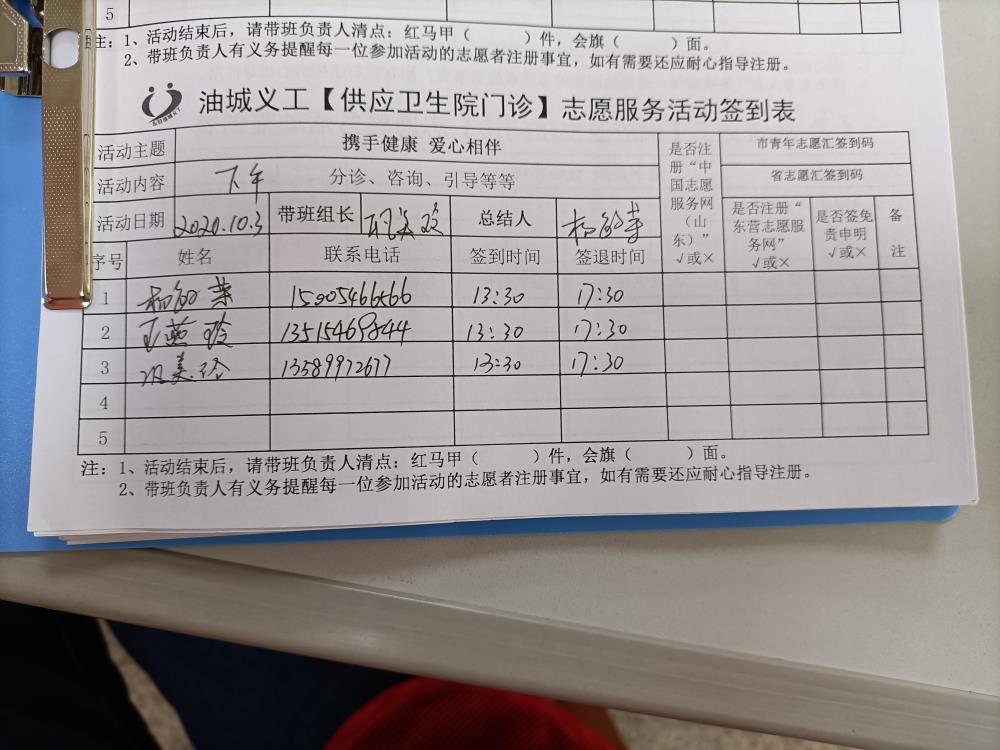 5
注：1、活动结束后，请带班负责人清点：红马甲（　　）件，会旗（　　）面。
2、带班负责人有义务提醒每一位参加活动的志愿者注册事宜，如有需要还应耐心指导注册。
油城义工【供应卫生院门诊】志愿服务活动签到表
活动主题 携手健康 爱心相伴
活动内容 下午 分诊、咨询、引导等等
活动日期 2020.10.3 带班组长 总结人
是否注册“中国志愿服务网（山东）” √或×
市青年志愿汇签到码
省志愿汇签到码
是否注册“东营志愿服务网” √或×
是否签免责申明 √或×
备注
序号 姓名 联系电话 签到时间 签退时间
1 13:30 17:30
2 13515469844 13:30 17:30
3 13589972677 13:30 17:30
4
5
注：1、活动结束后，请带班负责人清点：红马甲（　　）件，会旗（　　）面。
2、带班负责人有义务提醒每一位参加活动的志愿者注册事宜，如有需要还应耐心指导注册。